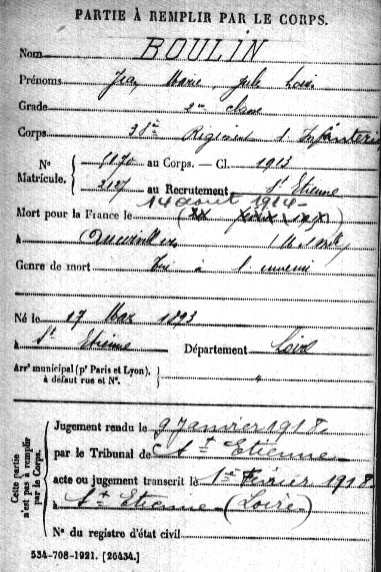 PARTIE À REMPLIR PAR LE CORPS.
Nom BOULIN
Prénoms Jean Marie, Jules Louis
Grade 2me classe
Corps 38e Régiment d'Infanterie
No Matricule. au Corps. — Cl. 1913
3127 au Recrutement St Etienne
14 août 1914
Mort pour la France le
à
Genre de mort Tué à l'ennemi
Né le 17 Mars 1893
à St Etienne Département Loire
Arrt municipal (pr Paris et Lyon),
à défaut rue et No.
Cette partie n'est pas à remplir par le Corps.
Jugement rendu le 9 janvier 1918
par le Tribunal de St Etienne
acte ou jugement transcrit le 1er Février 1918
à St Etienne (Loire)
No du registre d'état civil
534-708-1921. [26434.]